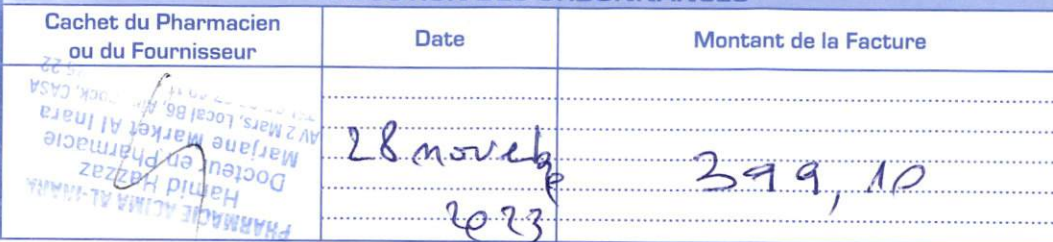 Cachet du Pharmacien
ou du Fournisseur
Date
Montant de la Facture
PHARMACIE ACIMA AL-INARA
Hamid Hazzaz
Docteur en Pharmacie
Marjane Market Al Inara
AV 2 Mars, Local B6, CASA
28 novebe
2023
399,10